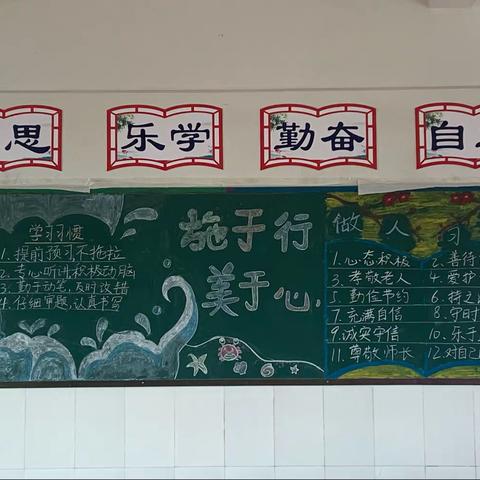 思 乐学 勤奋 自
施于行
美于心
学习习惯
1. 提前预习不拖拉
2. 专心听讲积极动脑
3. 勤于动笔,及时改错
4. 仔细审题,认真书写
做人习
1. 心态积极 2. 善待
3. 孝敬老人 4. 爱护
5. 勤俭节约 6. 持之
7. 充满自信 8. 守时
9. 诚实守信 10. 乐于
11. 尊敬师长 12. 对自己